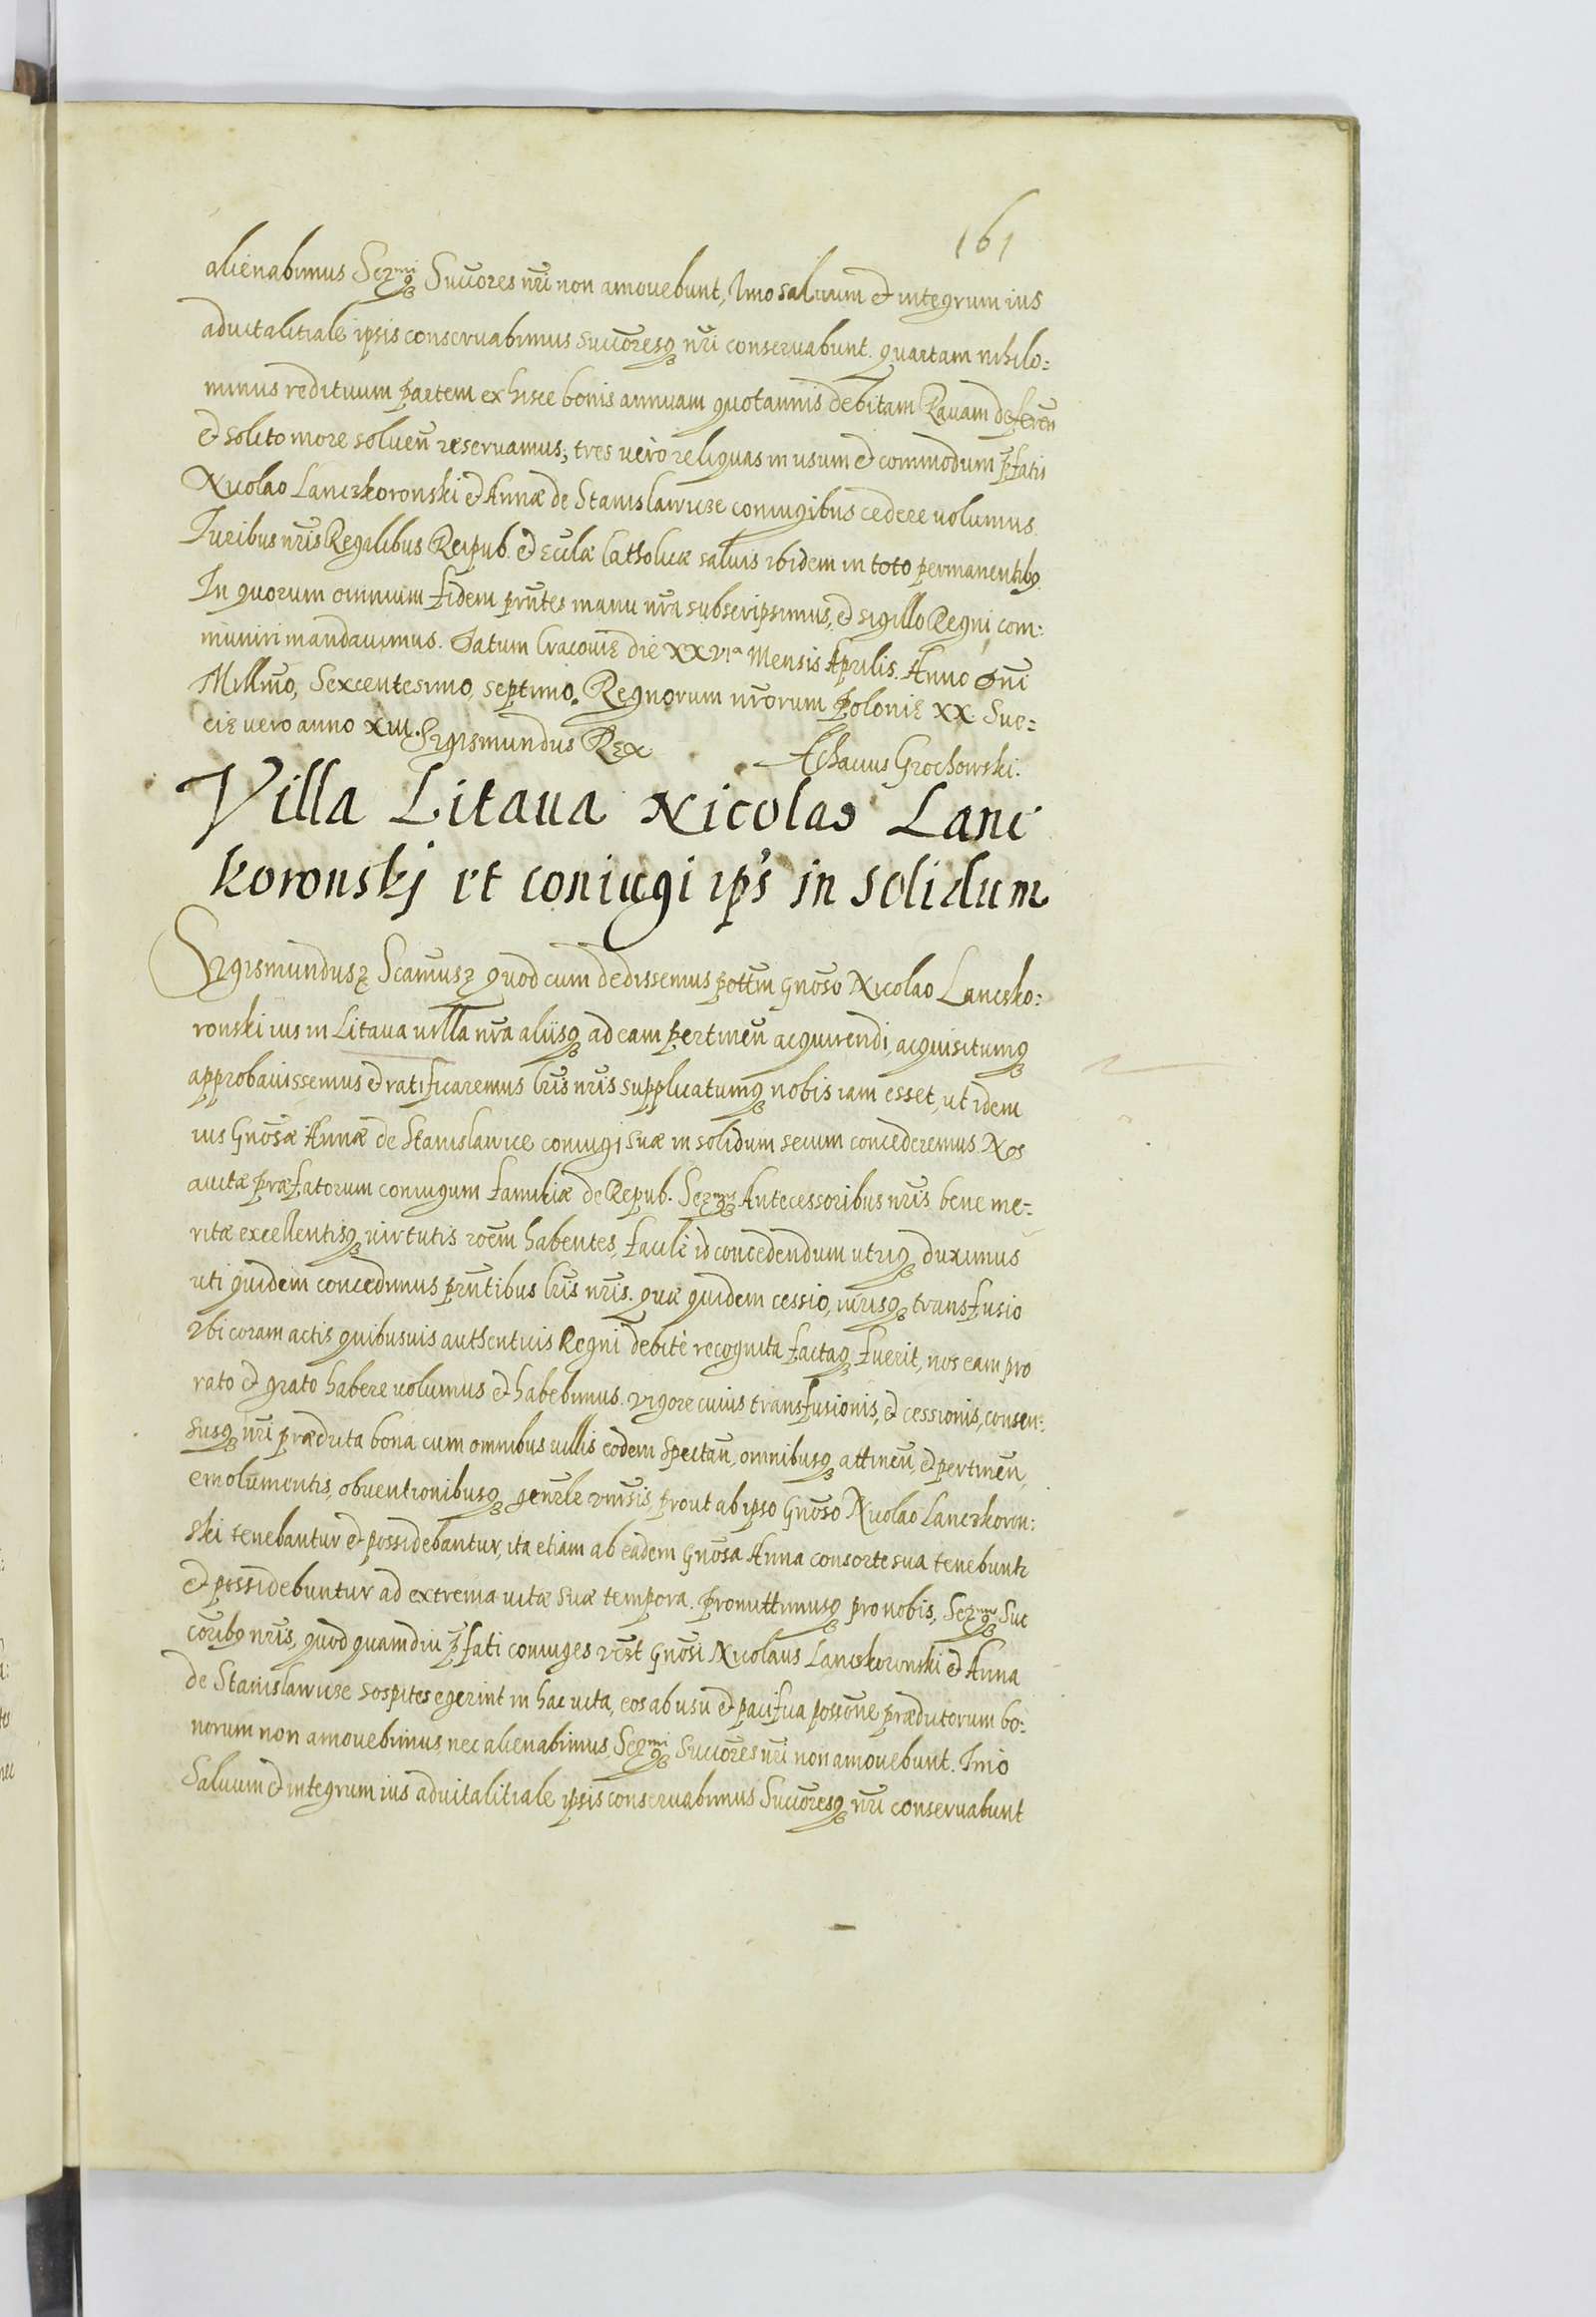 161
alienabimus Serm̄iq̄ Succ̄ores nr̄i non amouebunt, Imo saluum et integrum ius
aduitalitiale ipsis conseruabimus succ̄oresq̄ nr̄i conseruabunt. quartam nihilo=
minus redituum partem ex hisce bonis annuam quotannis debitam Rauam deferēn
et solito more soluen̄ reseruamus; tres uerò reliquas in usum et commodum p̄fatis
Nicolao Lanczkoronski et Annæ de Stanislawicze coniugibus cedere uolumus.
Iuribus nr̄is Regalibus Reipub. et Ecc̄læ Catholicæ saluis ibidem in toto permanentibq
In quorum omnium fidem prn̄tes manu nr̄a subscripsimus, et sigillo Regni com=
muniri mandauimus. Datum Cracouię die XXVIa Mensis Aprilis. Anno Dn̄i
Millm̄o, Sexcentesimo, septimo. Regnorum nr̄orum Polonię XX. Sue=
cię uero anno XIII. Sigismundus Rex Achacius Grochowski.
Villa Litaua Nicolao Lanc
koronskj et coniugi ip̄s in solidum
Sigismundusz Scām̄usz quod cum dedissemus pott̄m Gnōso Nicolao Lancsko=
ronski ius in Litaua uilla nr̄a aliisq̄ ad eam pertinen̄ acquirendi, acquisitumq̄
approbauissemus et ratificaremus lr̄is nr̄is supplicatumq̄ nobis iam esset, ut idem
ius Gnōsæ Annæ de Stanislawice coniugi suæ in solidum secum concederemus. Nos
auitæ præfatorum coniugum familiæ de Repub. Serm̄isq̄ Antecessoribus nr̄is bene me=
ritæ excellentisq̄ uirtutis rōēm habentes, facilè id concedendum utriq̄ duximus
uti quidem concedimus prn̄tibus lr̄is nr̄is. quæ quidem cessio, iurisq̄ transfusio
ubi coram actis quibusuis authenticis Regni debitè recognita factaq̄ fuerit, nos eam pro
rato et grato habere uolumus et habebimus. Vigore cuius transfusionis, et cessionis, consen=
susq̄ nr̄i prædicta bona cum omnibus uillis eòdem spectan̄, omnibusq̄ attinen̄, et pertinen̄,
emolumentis, obuentionibusq̄ gen̄rle vn̄isis, prout ab ipso Gnōso Nicolao Lanczkoron=
ski tenebantur et possidebantur, ita etiam ab eadem Gnōsa Anna consorte sua tenebuntr
et possidebuntur ad extrema uitæ suæ tempora. promittimusq̄ pro nobis, Serm̄isq̄ Suc
cōribq nr̄is, quod quamdiu p̄fati coniuges v̄est Gnōsi Nicolaus Lanczkoronski et Anna
de Stanislawicze sospites egerint in hac uita, eos ab usu et pacifica possōne prædictorum bo=
norum non amouebimus, nec alienabimus, Serm̄iq̄ Succōres nr̄i non amouebunt. Imo
Saluum et integrum ius aduitalitiale ipsis conseruabimus Succōresq̄ nr̄i conseruabunt